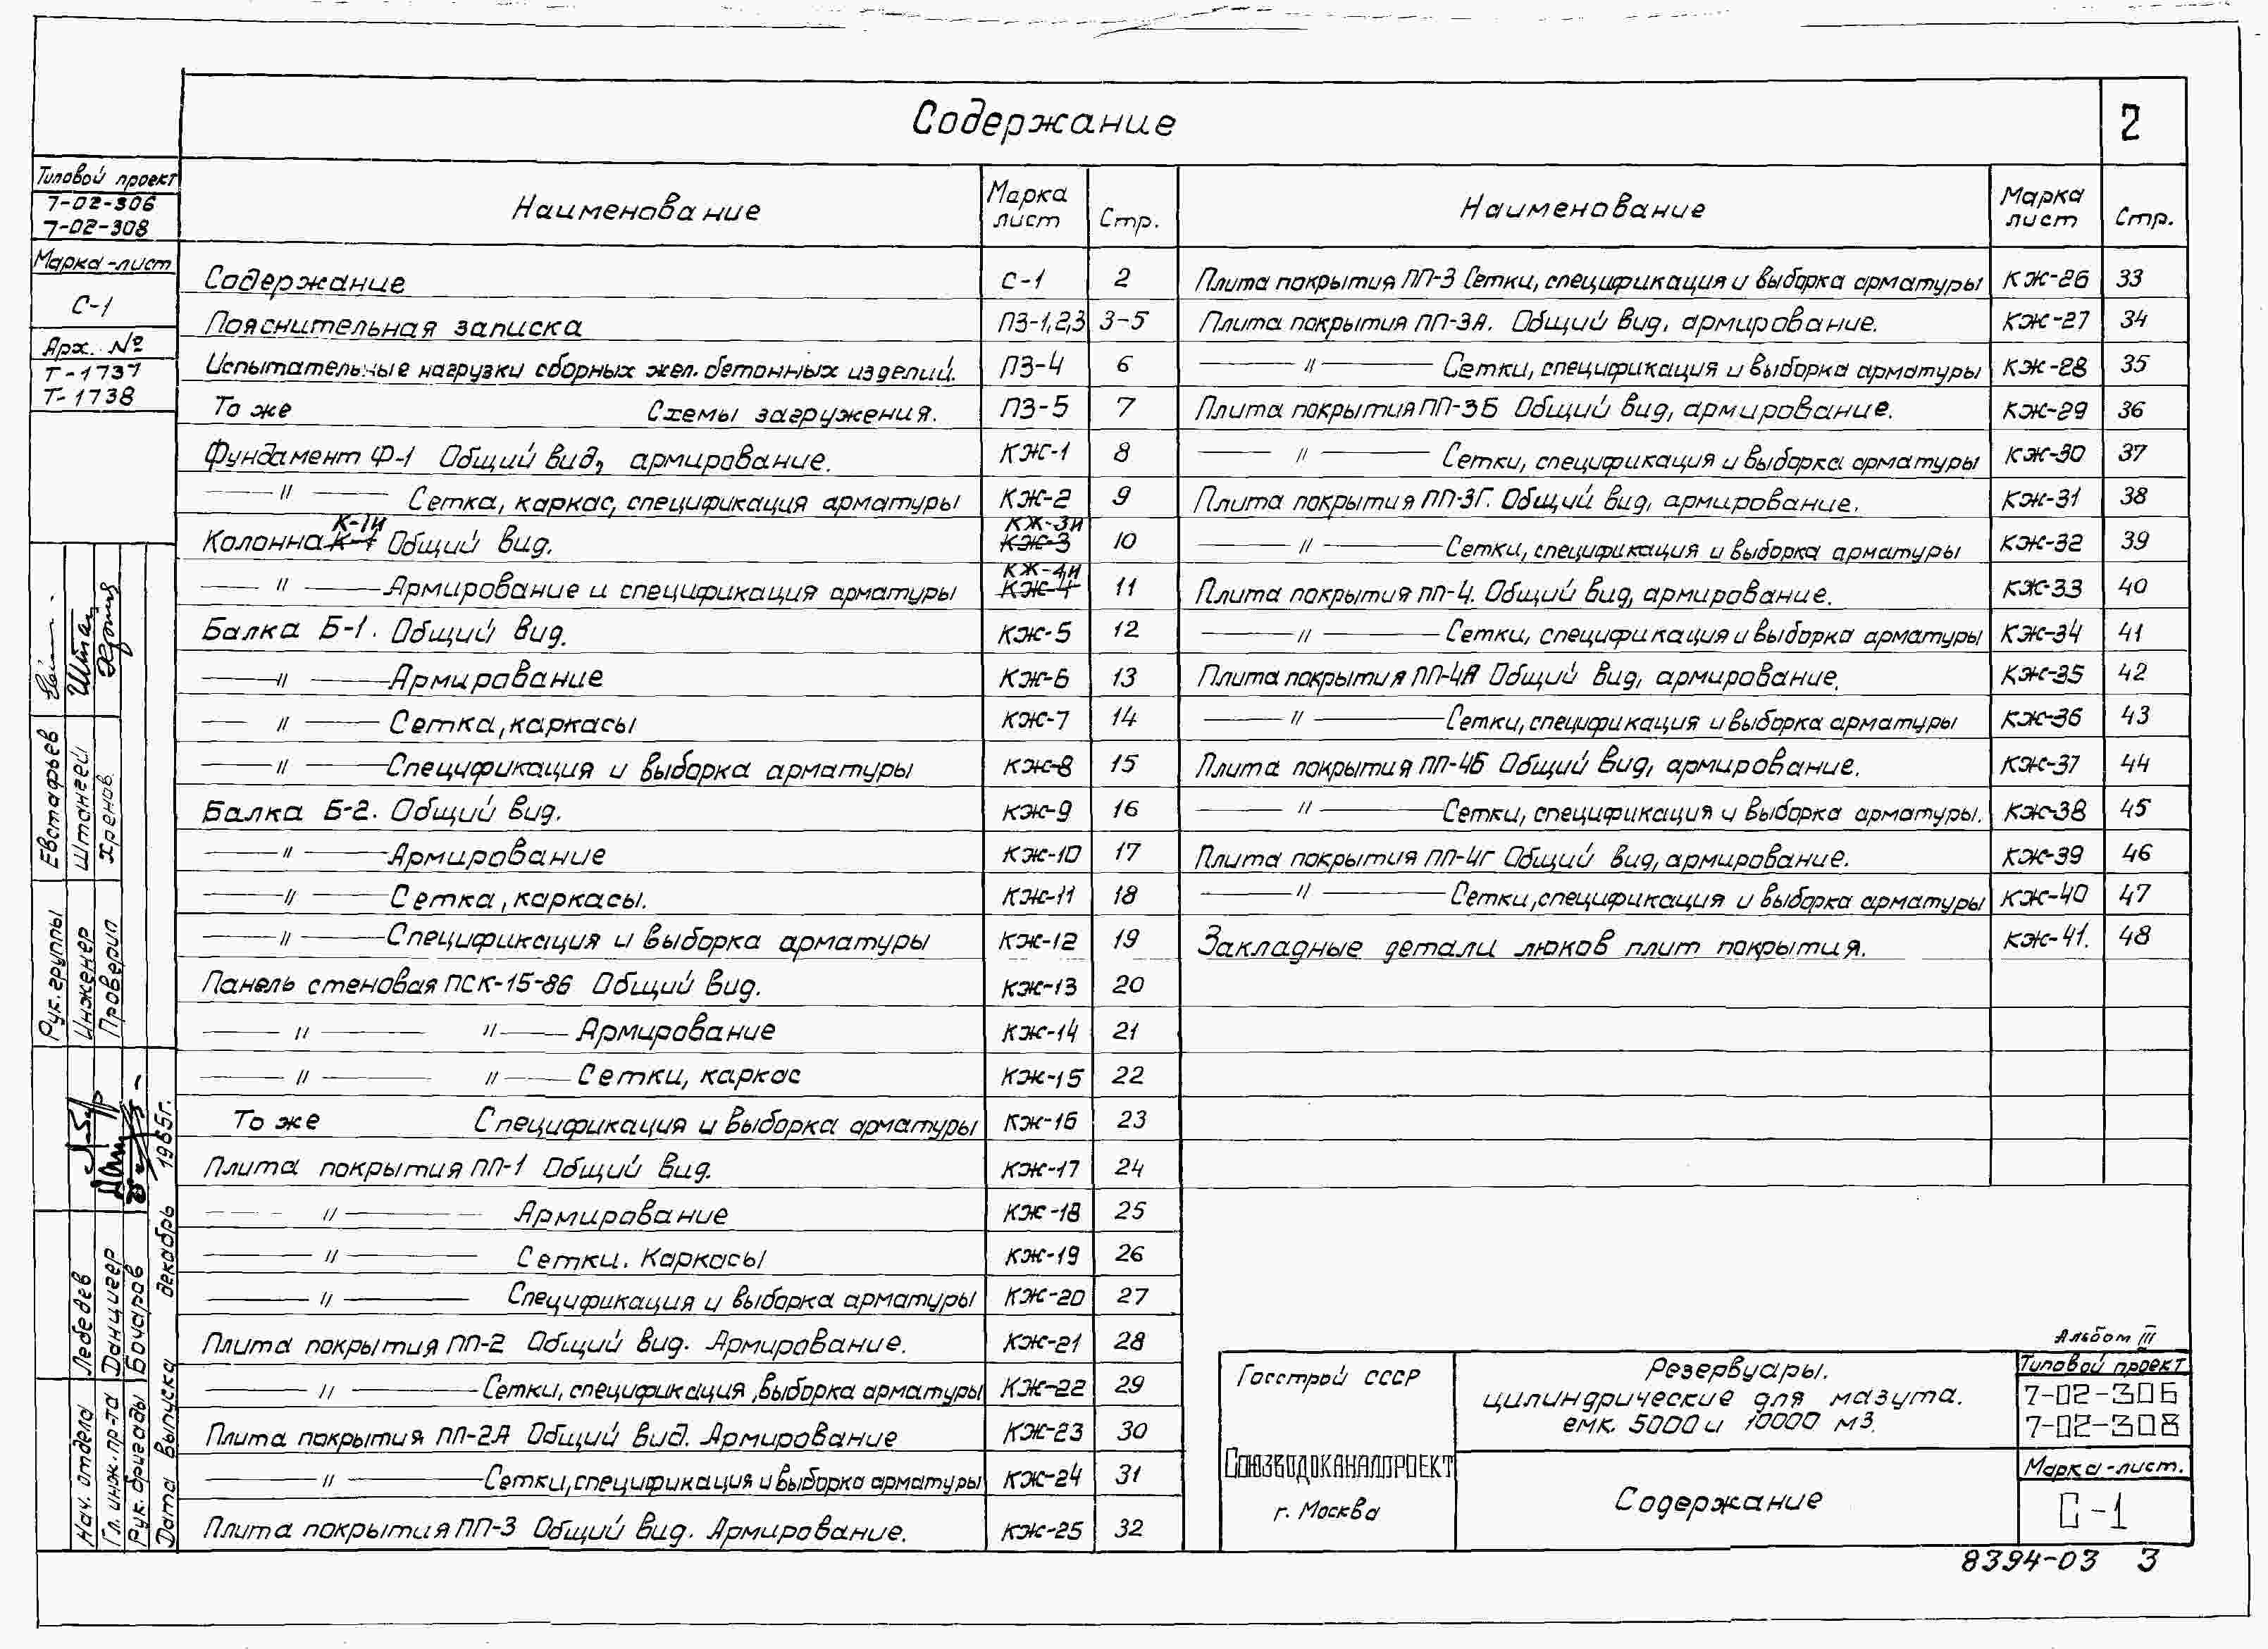 Содержание
2
Типовой проект
7-02-306
7-02-308
Марка-лист
С-1
Арх. №
Т-1737
Т-1738
Наименование Марка лист Стр.
Содержание С-1 2
Пояснительная записка ПЗ-1,2,3 3-5
Испытательные нагрузки сборных жел.бетонных изделий. ПЗ-4 6
То же Схемы загружения. ПЗ-5 7
Фундамент Ф-1 Общий вид, армирование. КЖ-1 8
—— " —— Сетка, каркас, спецификация арматуры КЖ-2 9
К-1И КЖ-3И
Колонна К-1 Общий вид. КЖ-3 10
КЖ-4И
—— " —— Армирование и спецификация арматуры КЖ-4 11
Балка Б-1. Общий вид. КЖ-5 12
—— " —— Армирование КЖ-6 13
—— " —— Сетка, каркасы КЖ-7 14
—— " —— Спецификация и выборка арматуры КЖ-8 15
Балка Б-2. Общий вид. КЖ-9 16
—— " —— Армирование КЖ-10 17
—— " —— Сетка, каркасы. КЖ-11 18
—— " —— Спецификация и выборка арматуры КЖ-12 19
Панель стеновая ПСК-15-86 Общий вид. КЖ-13 20
—— " —— " —— Армирование КЖ-14 21
—— " —— " —— Сетки, каркас КЖ-15 22
То же Спецификация и выборка арматуры КЖ-16 23
Плита покрытия ПП-1 Общий вид. КЖ-17 24
—— " —— Армирование КЖ-18 25
—— " —— Сетки. Каркасы КЖ-19 26
—— " —— Спецификация и выборка арматуры КЖ-20 27
Плита покрытия ПП-2 Общий вид. Армирование. КЖ-21 28
—— " —— Сетки, спецификация, выборка арматуры КЖ-22 29
Плита покрытия ПП-2А Общий вид. Армирование КЖ-23 30
—— " —— Сетки, спецификация и выборка арматуры КЖ-24 31
Плита покрытия ПП-3 Общий вид. Армирование. КЖ-25 32
Наименование Марка лист Стр.
Плита покрытия ПП-3 Сетки, спецификация и выборка арматуры КЖ-26 33
Плита покрытия ПП-3А. Общий вид, армирование. КЖ-27 34
—— " —— Сетки, спецификация и выборка арматуры КЖ-28 35
Плита покрытия ПП-3Б Общий вид, армирование. КЖ-29 36
—— " —— Сетки, спецификация и выборка арматуры КЖ-30 37
Плита покрытия ПП-3Г. Общий вид, армирование. КЖ-31 38
—— " —— Сетки, спецификация и выборка арматуры КЖ-32 39
Плита покрытия ПП-4. Общий вид, армирование. КЖ-33 40
—— " —— Сетки, спецификация и выборка арматуры КЖ-34 41
Плита покрытия ПП-4А Общий вид, армирование. КЖ-35 42
—— " —— Сетки, спецификация и выборка арматуры КЖ-36 43
Плита покрытия ПП-4Б Общий вид, армирование. КЖ-37 44
—— " —— Сетки, спецификация и выборка арматуры. КЖ-38 45
Плита покрытия ПП-4Г Общий вид, армирование. КЖ-39 46
—— " —— Сетки, спецификация и выборка арматуры КЖ-40 47
Закладные детали люков плит покрытия. КЖ-41. 48
Рук. группы Евстафьев
Инженер Штангей
Проверил Хренов.
Нач. отдела Лебедев
Гл. инж. пр-та Данцигер
Рук. бригады Бочаров
Дата выпуска декабрь 1965г.
Альбом III
Госстрой СССР
Союзводоканалпроект
г. Москва
Резервуары.
цилиндрические для мазута.
емк. 5000 и 10000 м3.
Содержание
Типовой проект
7-02-306
7-02-308
Марка-лист.
С-1
8394-03 3